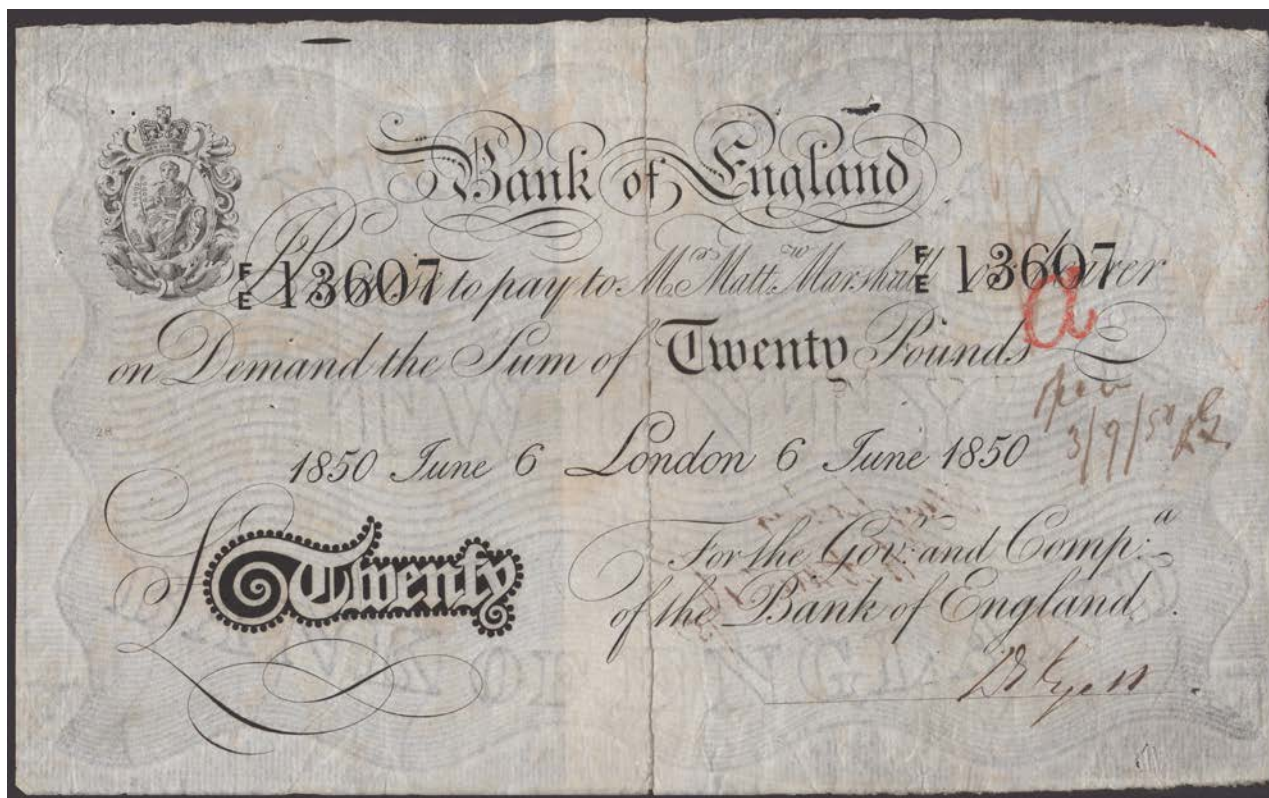 Bank of England
F/E 13607 F/E 13607
I Promise to pay to Mr. Matt.w Marshall or bearer
on Demand the Sum of Twenty Pounds
a
TWENTY
3/9/50
1850 June 6 London 6 June 1850
£Twenty
For the Gov.r and Comp.a
of the Bank of England
OF ENGLAND